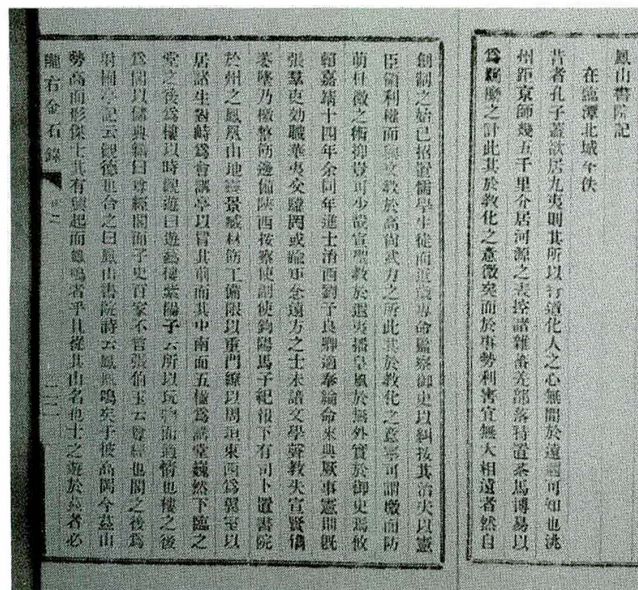 鳳山書院記
在臨潭北城今佚
昔者孔子蓋欲居九夷則其所以行道化人之心無間於遠邇可知也洮
州距京師幾五千里介居河源之表控諸雜番羌部落特置茶馬博易以
為羈縻之計此其於教化之意微矣而於事勢利害宜無大相遠者然自
創制之始已招置儒學生徒而近歲專命監察御史以糾技其治夫以憲
臣領利權而興文教於高尚武力之所此其於教化之意寧可謂微而防
萌杜微之術抑豈可少哉宣聖教於遐夷播皇風於無外實於御史焉攸
賴嘉靖十四年余同年進士洛西劉子良卿適奉綸命來典厥事憲聞既
張羣吏効職華夷交驩閱或踰軍忿遠方之士未諳文學聲教失宣賢俊
於州之鳳凰山地靈景臧材飭工備限以重門繚以周垣東西為翼室以
居諸生對峙為會講亭以冒其前而其中南面五楹為講堂巍然下臨之
堂之後為樓以時觀遊曰遊藝樓紫陽子云所以玩物而適情也樓之後
為閣以儲典籍曰尊經閣而子史百家不言張伯玉云尊經也閣之後為
射圃亭記云觀德也合之曰鳳山書院詩云鳳凰鳴矣于彼高岡今茲山
勢高而形傑士其有興起而鳳鳴者乎且從其山名也士之遊於茲者必
隴右金石錄